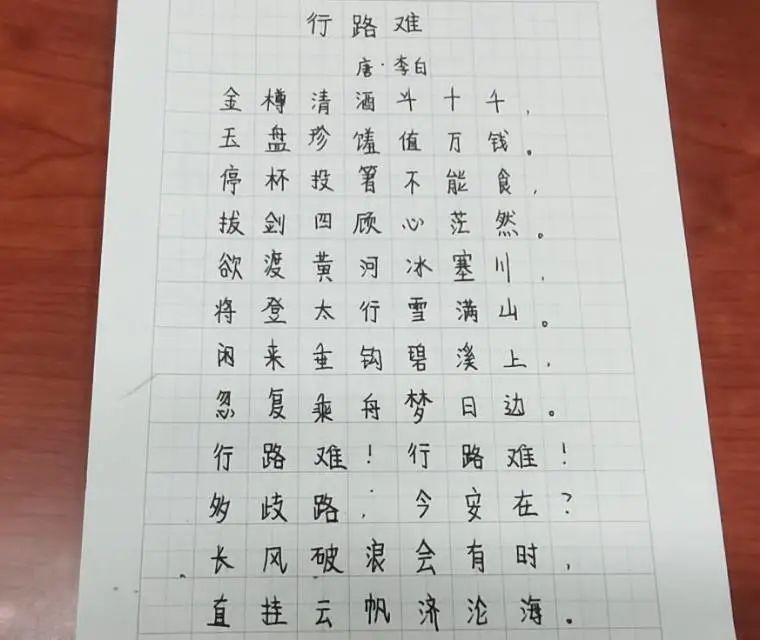 行路难
唐·李白
金樽清酒斗十千,
玉盘珍馐值万钱。
停杯投箸不能食,
拔剑四顾心茫然。
欲渡黄河冰塞川,
将登太行雪满山。
闲来垂钩碧溪上,
忽复乘舟梦日边。
行路难!行路难!
多歧路,今安在?
长风破浪会有时,
直挂云帆济沧海。